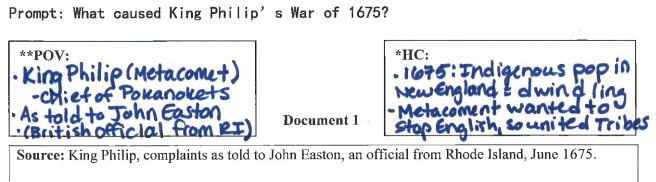 Prompt: What caused King Philip's War of 1675?
**POV:
• King Philip (Metacomet)
- Chief of Pokanokets
• As told to John Easton
• (British official from RI)
Document 1
*HC:
• 1675: Indigenous pop in
New England = dwindling
- Metacoment wanted to
Stop English, so united Tribes
Source: King Philip, complaints as told to John Easton, an official from Rhode Island, June 1675.